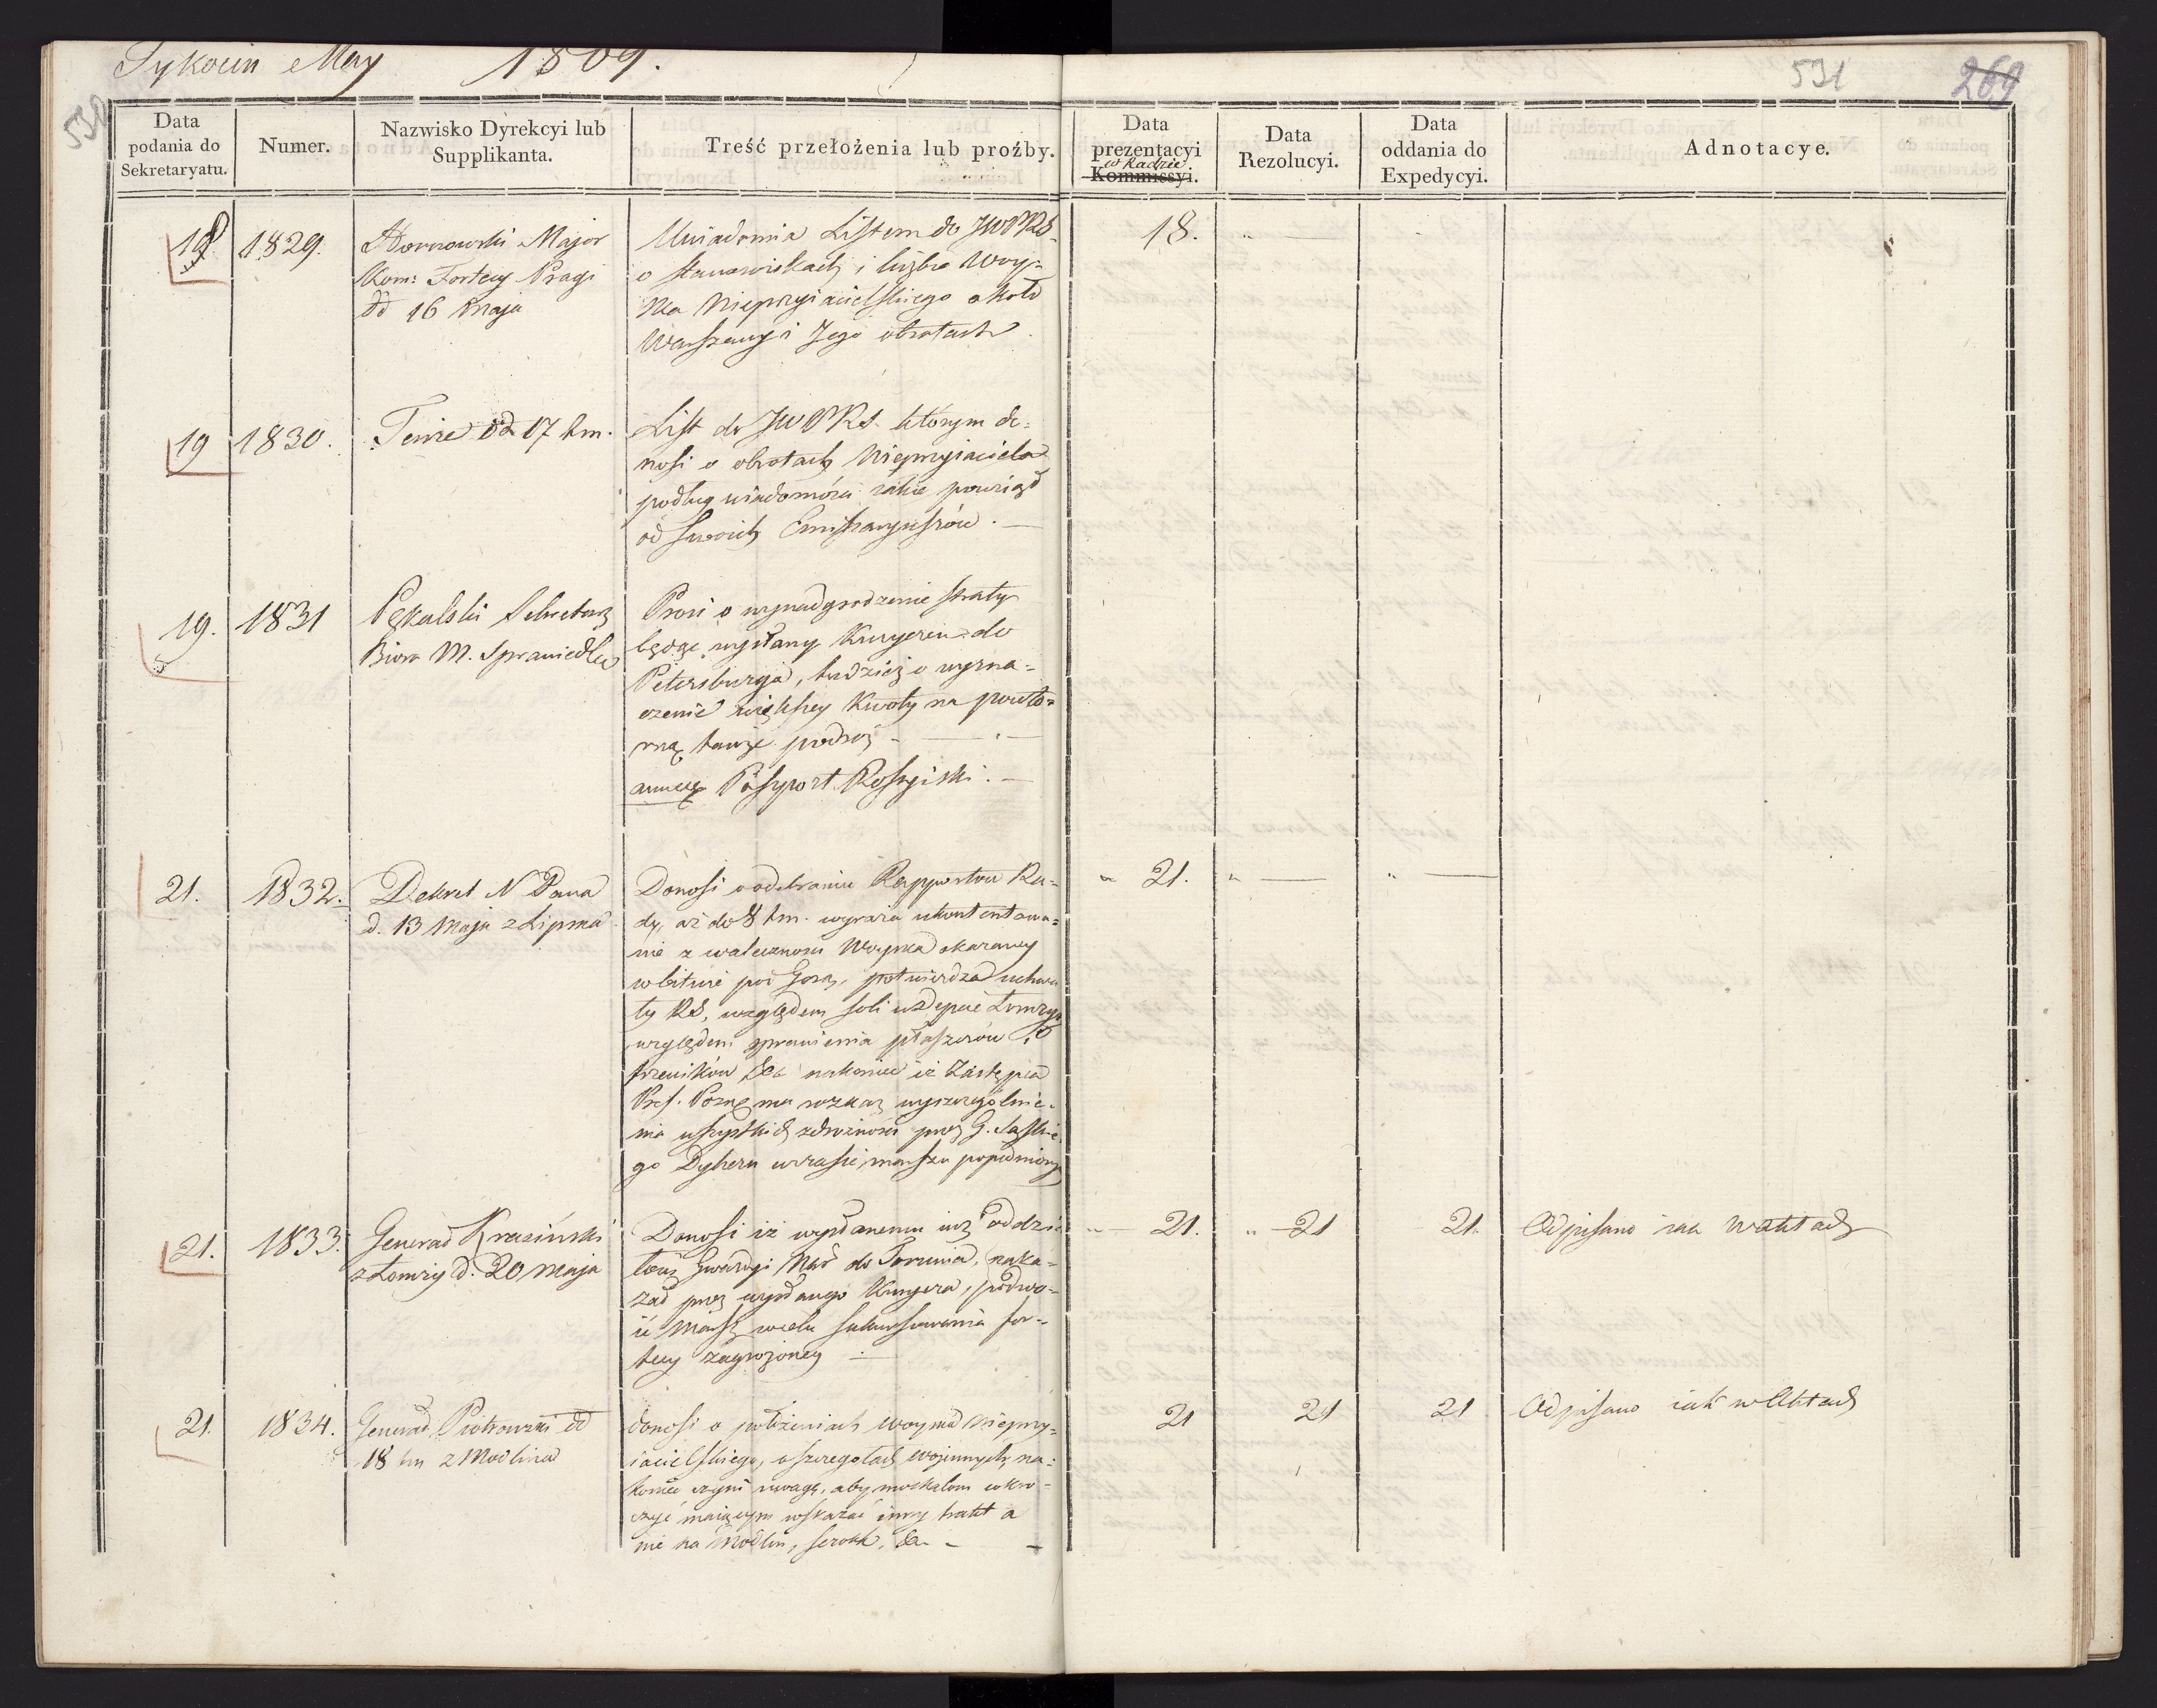 Tykocin May 1809.
530
531
269
Data podania do Sekretaryatu.
Numer.
Nazwisko Dyrekcyi lub Supplikanta.
Treść przełożenia lub proźby.
Data prezentacyi w Radzie Kommissyi.
Data Rezolucyi.
Data oddania do Expedycyi.
Adnotacye.
18 1829. Hornowski Major
Kom: Fortecy Pragi
dd 16 maja
Uwiadomia Listem do JWPRS.
o stanowiskach i liczbie Woy=
ska Nieprzyiacielskiego około
Warszawy i Jego obrotach.
18. " —
19 1830. Tenże dd 17 hm.
List do JWPRS. którym do=
nosi o obrotach Nieprzyiaciela
podług wiadomości iakie powziął
od swoich Emissaryuszów. —
19. 1831 Pękalski Sekretarz
Biora M. Sprawiedlw
Prosi o wynadgrodzenie straty
będąc wysłany Kuryerem do
Petersburga, tudzież o wyzna=
czenie większey kwoty na powtó=
rną tamże podróż — . —
annecx Passport Rossyiski. —
21. 1832. Dekret N Pana
d. 13 Maja z Lipska
Donosi o odebraniu Rapportow Ra=
dy, aż do 8 hm. wyraża ukontentowa=
nie z waleczności Woyska okazaney
w bitwie pod Gorą, potwierdza uchwa
ły RS, względem soli w Depcie Łomzyń
względem sprawienia płaszczów
&c nakoniec iż Zastępca
Pref. Pozn. ma rozkaz wyszczególnie=
nia wszystkich zdrożności przez G. Saskie
go Dyhern w czasie marszu popełniony
" 21. " — " —
21. 1833. Generał Krasiński
z Łomży d. 20 maja
Donosi iż wysłanemu iuż oddzia
łowi Gwardyi Nar do Torunia, naka=
zał przez wysłanego Kuryera, podwo=
ić Marsz w celu sukursowania for=
tecy zagrożoney —
" — 21. " — 21 21. Odpisano iak w aktach
21. 1834. Generał Piotrowski dd
18 hm z Modlina
donosi o położeniach Woyska nieprzy=
iacielskiego, o szczegołach woiennych, na=
koniec czyni uwagę, aby moskalom wkro=
czyć maiącym wskazać inny trakt a
nie na Modlin, Serock, &c — —
21 21 21 Odpisano iak w Aktach